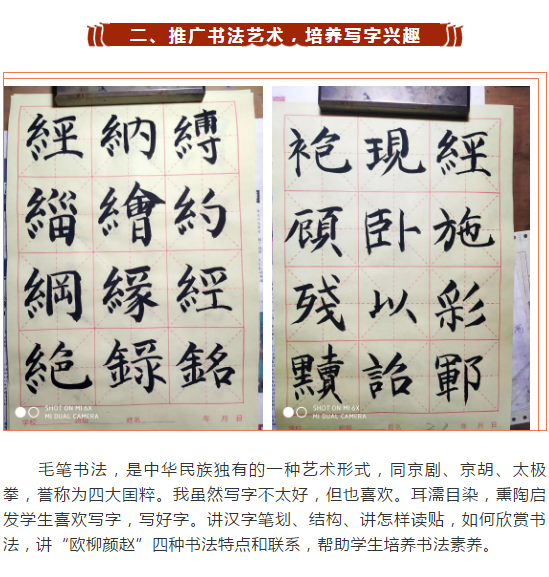 二、推广书法艺术，培养写字兴趣
經 納 縛
緇 繪 約
綱 緣 經
絕 錄 銘
SHOT ON MI 6X
MI DUAL CAMERA
学校 姓名 年 月 日
現 經
臥 施
殘 以 彩
黷 詒 鄆
SHOT ON MI 6X
MI DUAL CAMERA
学校 姓名 年 月 日
毛笔书法，是中华民族独有的一种艺术形式，同京剧、京胡、太极
拳，誉称为四大国粹。我虽然写字不太好，但也喜欢。耳濡目染，熏陶启
发学生喜欢写字，写好字。讲汉字笔划、结构、讲怎样读贴，如何欣赏书
法，讲“欧柳颜赵”四种书法特点和联系，帮助学生培养书法素养。